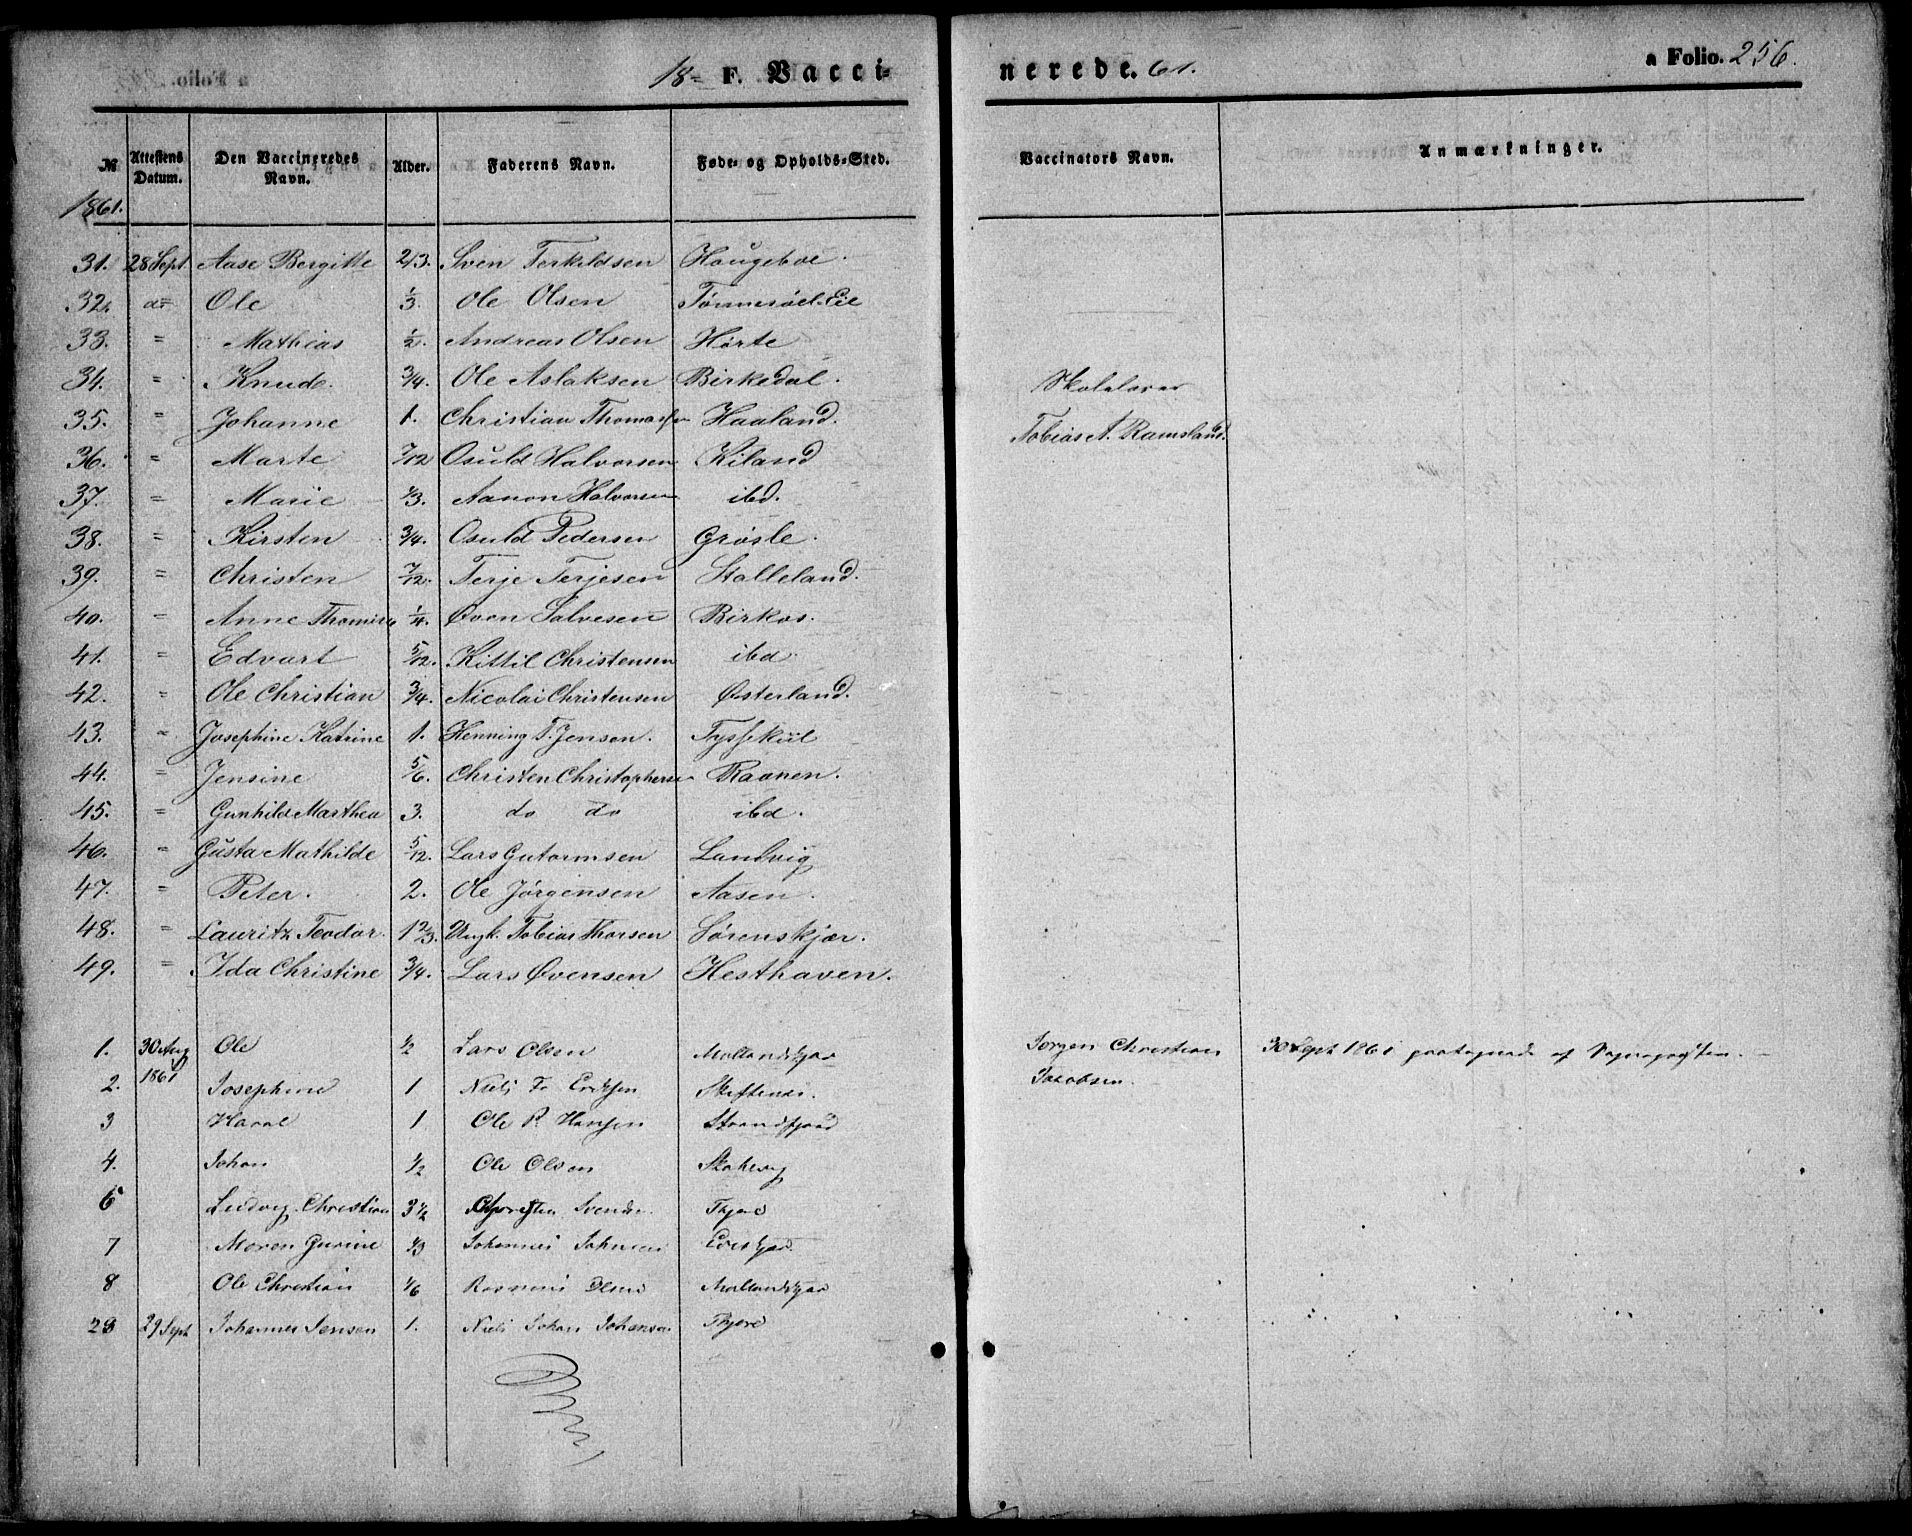 18= F. Vacci=
nerede. 61.
a Folio. 256.
№ Attestens Datum. Den Vaccineredes Navn. Alder. Faderens Navn. Føde= og Opholds=Sted. Vaccinators Navn. Anmærkninger.
1861.
31. 28 Sept Aase Bergitte 2/3. Sven Terkildsen Haugeboe.
32. do Ole 1/3. Ole Olsen
33. = Mathias 1/2. Andreas Olsen Hørte
34. = Knud. 3/4. Ole Aslaksen Birkedal. Skolelærer
35. = Johanne 1. Christian Thomassen Haaland. Tobias A. Ramsland.
36. = Marte 7/12 Osuld Halvorsen Kiland
37. = Marie 1/3. Aanon Halvorsen ibd.
38. = Kirsten 3/4. Osuld Pedersen Grøsle.
39. = Christen 7/12. Terje Terjesen Stalleland.
40. = Anne Thomine 1/4. Øven Salvesen Birkos.
41. = Edvart 5/12. Kittil Christensen ibd
42. = Ole Christian 3/4. Nicolai Christensen Østerland.
43. = Josephine Katrine 1. Henning T. Jensen. Tysskiil
44. = Jensine 5/6. Christen Christophersen Ravnen.
45. = Gunhild Marthea 3. do do ibd.
46. = Gusta Mathilde 5/12. Lars Gutormsen Landvig
47. = Peter. 2. Ole Jørgensen Aasen.
48. = Lauritz Teodor. 1 2/3. Ungk. Tobias Thorsen Sørenskjær.
49. = Ida Christine 3/4. Lars Øvensen Hesthaven.
1. 30 Aug Ole 1/2 Lars Olsen Mollandskjær Jørgen Christian 30 Sept 1861 paategnede af Sognepresten.
2. 1861 Josephine 1 Niels Fr Eriksen Skiftenes. Jacobsen.
3 Haral 1 Ole R. Hansen Strandfjord
4. Johan 1/2 Ole Olsen
6 Ludvig Christian 3 1/2 Christen Svends. Fhjære
7 Maren Gurine 1/3 Johannes
8 Ole Christian 1/6 Rasmus Olsen Mollandskjær
28 29 Sept Johannes Jensen 1. Niels Johan Johansen Fhjære